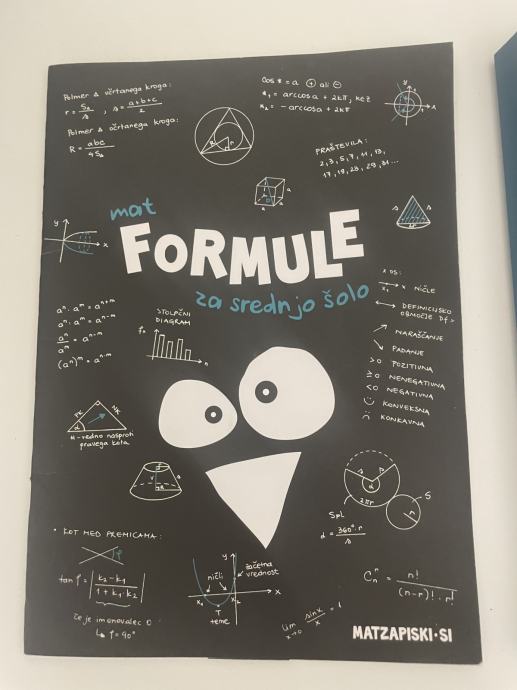 Polmer Δ včrtanega kroga:
r = SΔ/s , s = a+b+c/2
Polmer Δ očrtanega kroga:
R = abc/4SΔ
cos x = a ⊕ ali ⊖
x₁ = arccosa + 2kπ, k∈ℤ
x₂ = -arccosa + 2kπ
PRAŠTEVILA:
2,3,5,7,11,13,
17,19,23,29,31...
mat
FORMULE
za srednjo šolo
aⁿ · aᵐ = aⁿ⁺ᵐ
aⁿ : aᵐ = aⁿ⁻ᵐ
aⁿ/aᵐ = aⁿ⁻ᵐ
(aⁿ)ᵐ = aⁿ·ᵐ
STOLPČNI
DIAGRAM
x OS:
NIČLE
DEFINICIJSKO
OBMOČJE Df
NARAŠČANJE
PADANJE
>0 POZITIVNA
≥0 NENEGATIVNA
<0 NEGATIVNA
KONVEKSNA
KONKAVNA
PK NK
α
H-vedno nasproti
pravega kota
2πr
S
r
Spl
α = 360°·r/s
• KOT MED PREMICAMA:
φ
tan φ = |k₂-k₁/1+k₁·k₂|
če je imenovalec 0
↳ φ=90°
y
x
ničli
začetna
vrednost
x₁ x₂
T
teme
lim x→0 sinx/x = 1
n!/(n-r)!·r!
MATZAPISKI·SI